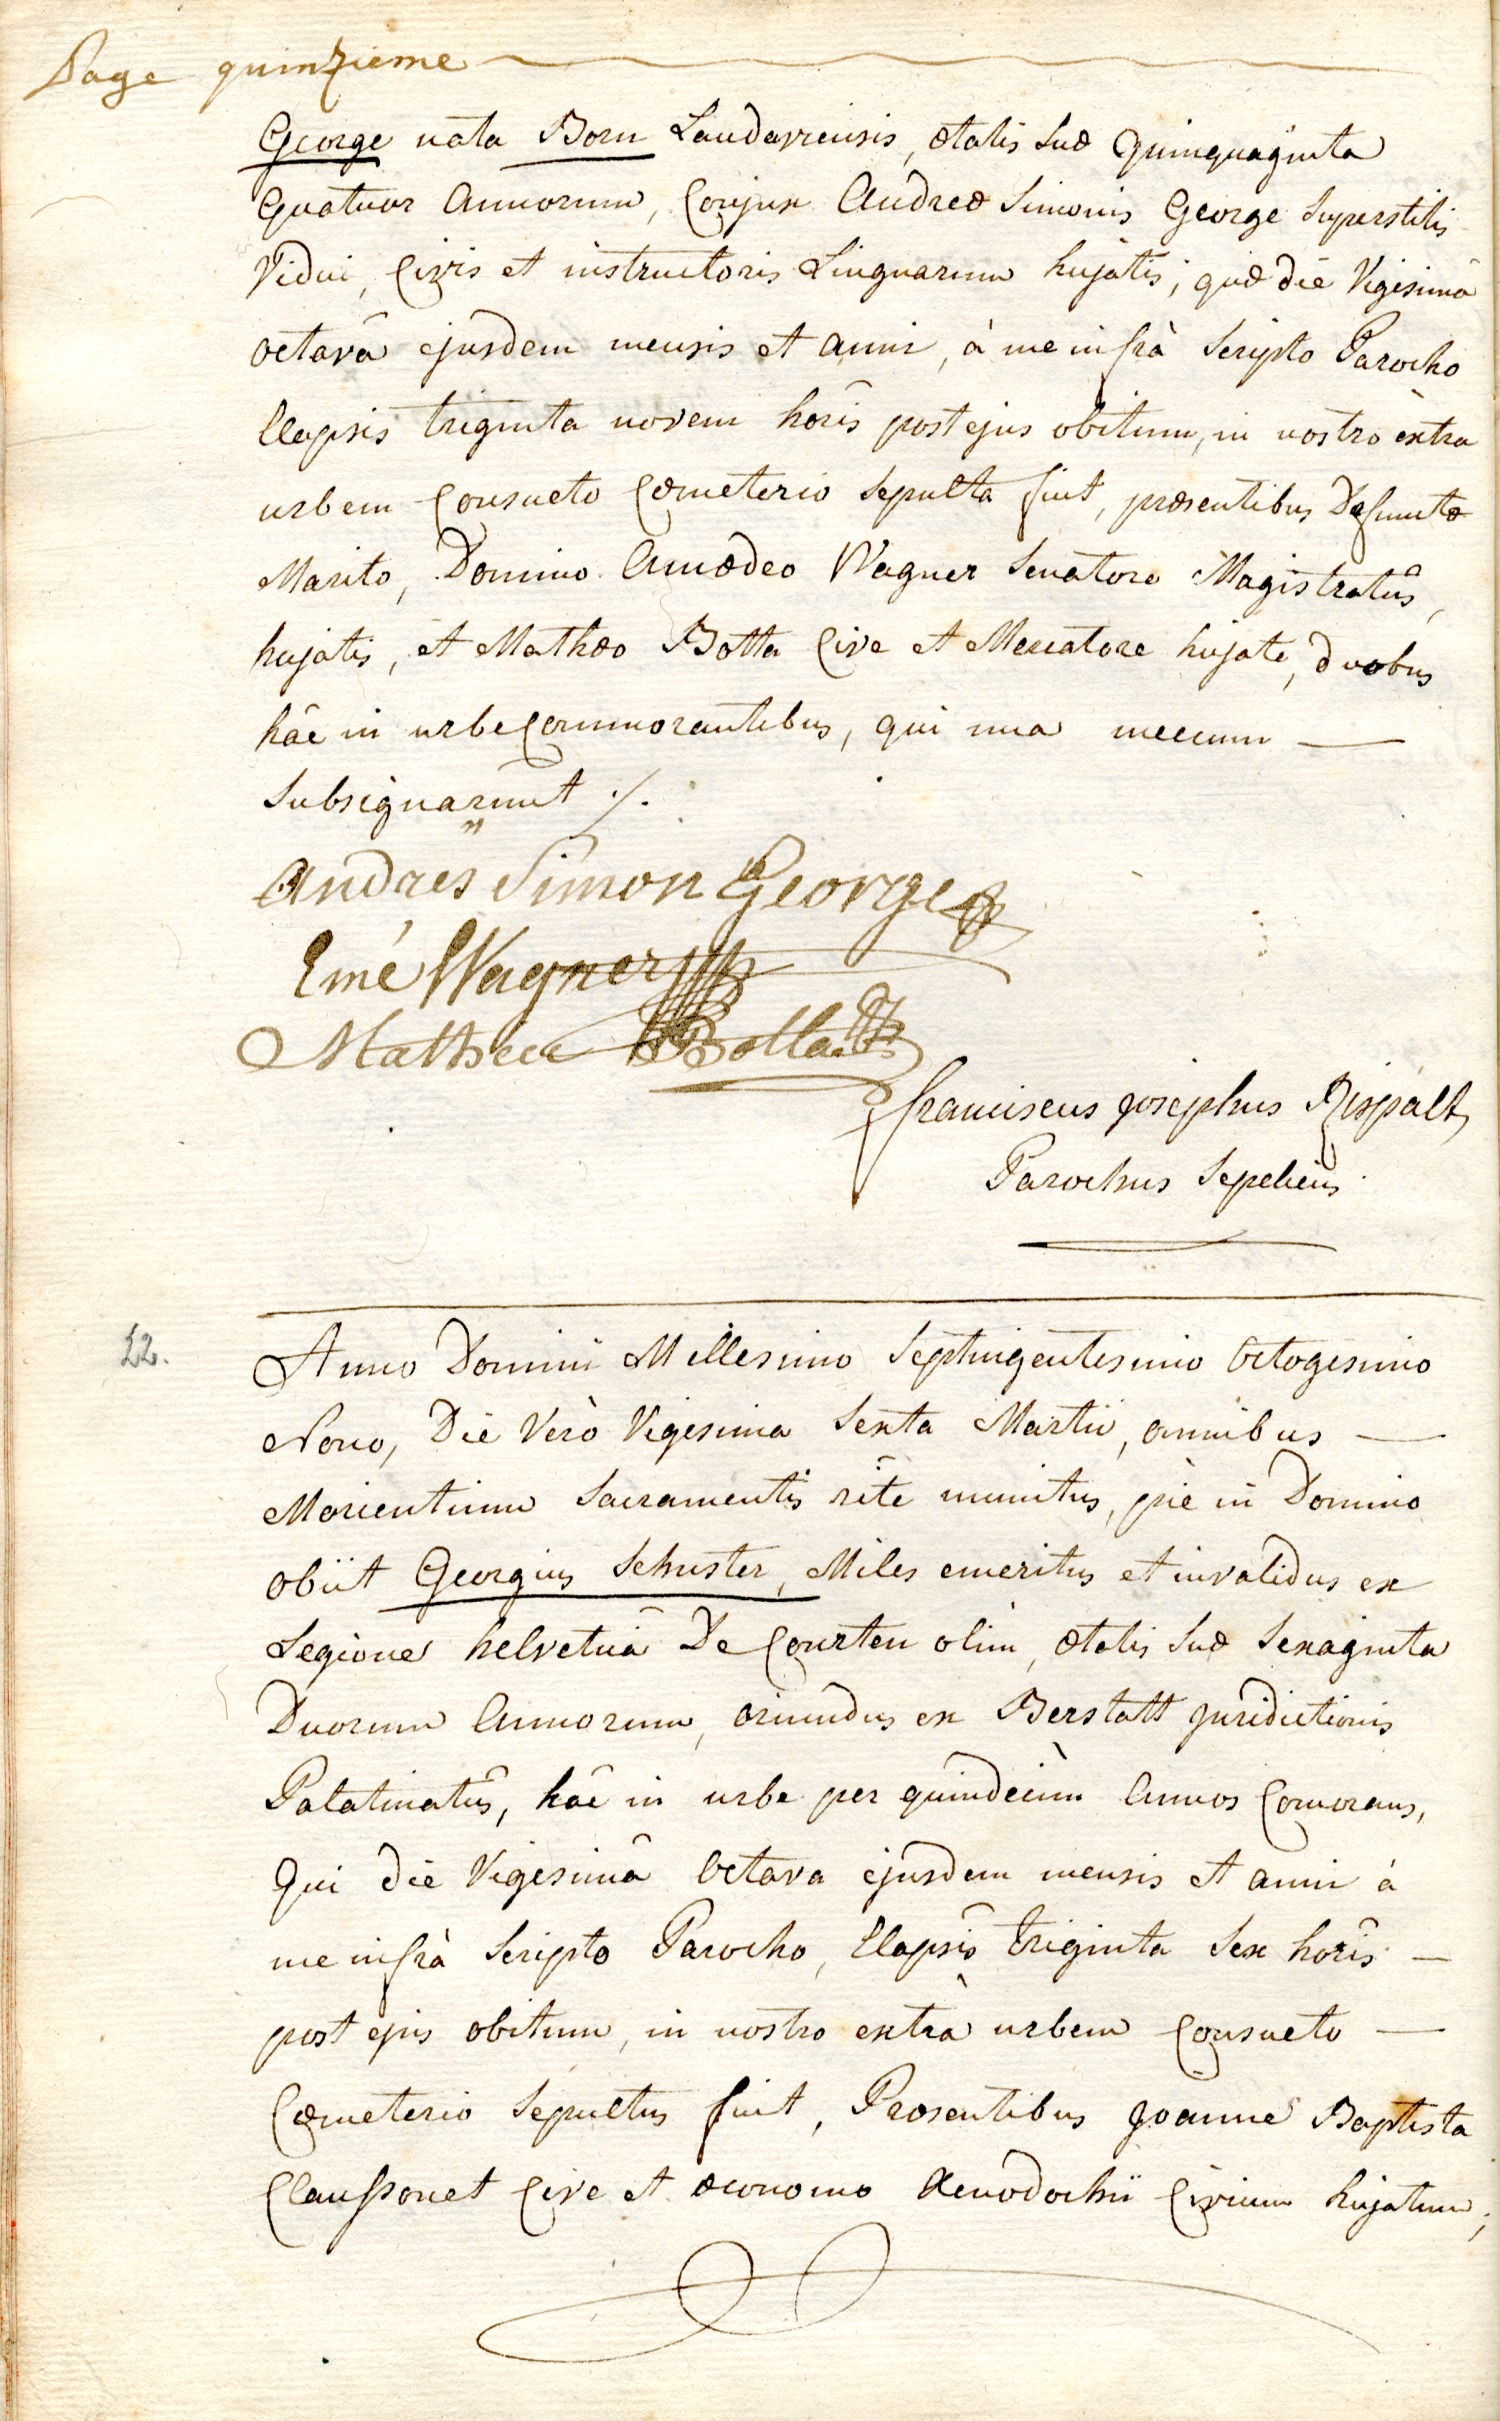 Page quinzieme
George nata Born Landaviensis, ætatis suæ quinquaginta
quatuor annorum, Conjux Andreæ Simonis George superstitis
Vidui, Civis et instructoris Linguarum hujatis; quæ die Vigesimâ
octavâ ejusdem mensis et anni, à me infrà scripto Parocho
Elapsis triginta novem horis post ejus obitum, in nostro extra
urbem Consueto Cœmeterio sepulta fuit, præsentibus Defunctæ
Marito, Domino Amædeo Wagner Senatore Magistratûs
hujatis, et Mathæo Botta Cive et Mercatore hujate, duobus
hâc in urbe Commorantibus, qui una mecum —
subsignarunt ./.
Andres Simon George
Emé Wagner
Matheu Botta
franciscus josephus Rispalt
Parochus sepeliens
22.
Anno Domini Millesimo Septingentesimo Octogesimo
Nono, Die Verò Vigesima Sexta Martii, omnibus —
Morientium Sacramentis rite munitus, piè in Domino
obiit Georgius Schuster, Miles emeritus et invalidus ex
Legione helvetiâ De Courten olim, ætatis suæ sexaginta
Duorum Annorum, oriundus ex Berstatt jurisdictionis
Palatinatûs, hâc in urbe per quindecim Annos Comorans,
Qui die Vigesimâ Octava ejusdem mensis et anni à
me infrà Scripto Parocho, Elapsis triginta sex horis —
post ejus obitum, in nostro extrà urbem Consueto —
Cœmeterio Sepultus fuit, Præsentibus Joanne Baptista
Claussonet Cive et œconomo Xenodochii Civium hujatum;